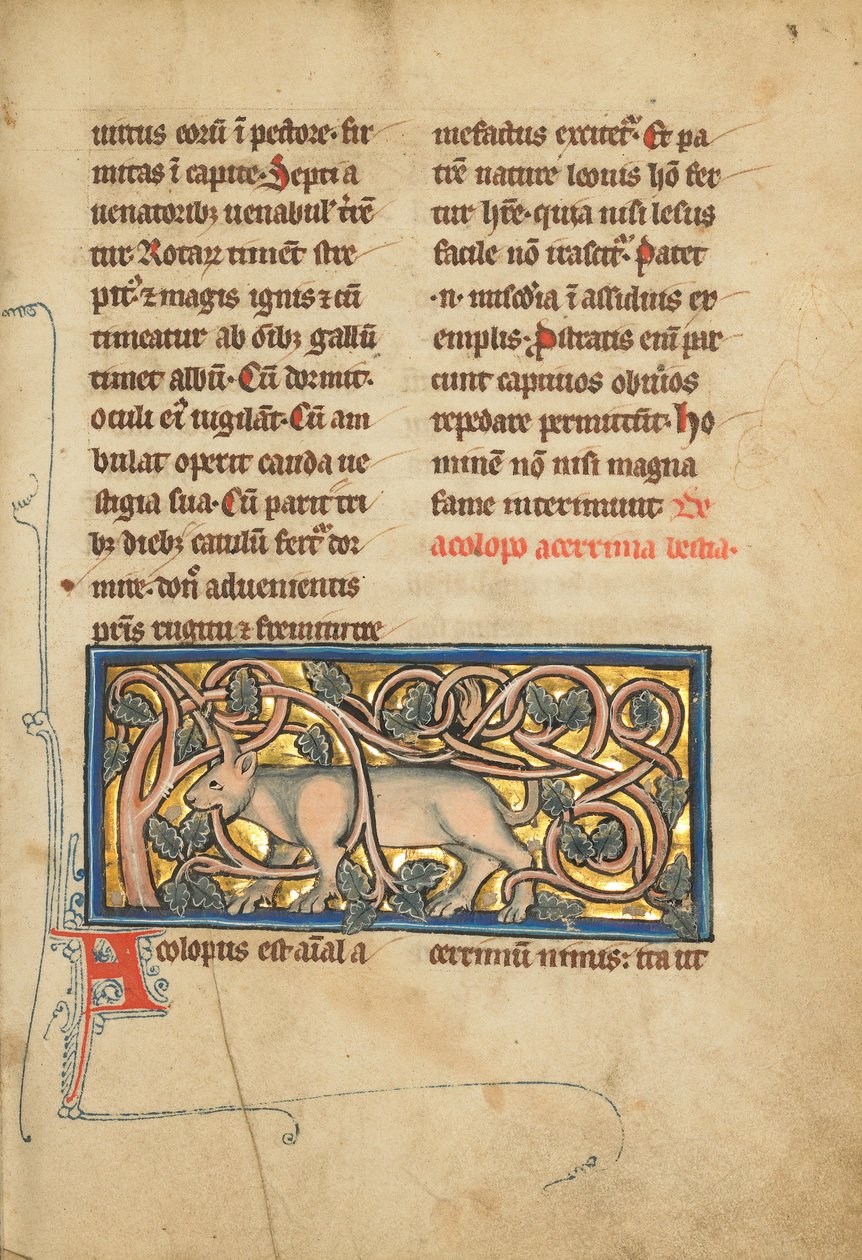 uirtus eorũ ĩ pectore· fir
mitas ĩ capite· Septi a
uenatoribꝫ uenabul' t̃rẽ
tur· Rotaꝝ timẽt stre
pit᷒· ⁊ magis ignis ⁊ cũ
timeatur ab õibꝫ gallũ
timet albũ· Cũ dormit·
oculi ei᷒ uigilãt· Cũ am
bulat operit cauda ue
stigia sua· Cũ parit tri
bꝫ diebꝫ catulũ fert᷑ dor
mire· don̾ aduenientis
pr̃is rugitu ⁊ fremitu tre
mefactus excitet᷑· Et pa
trẽ nature leonis hõ fer
tur hr̃e· quia nisi lesus
facile nõ irascit᷑· Patet
·n· mis̃c̃dia ĩ assiduis ex
emplis· Pstratis eni᷒ par
cunt captiuos obuios
repedare permittũt· Ho
minẽ nõ nisi magna
fame interimunt De
acolopo acerrima bestia·
Acolopus est aĩal a
cerrimũ nimis: ita ut